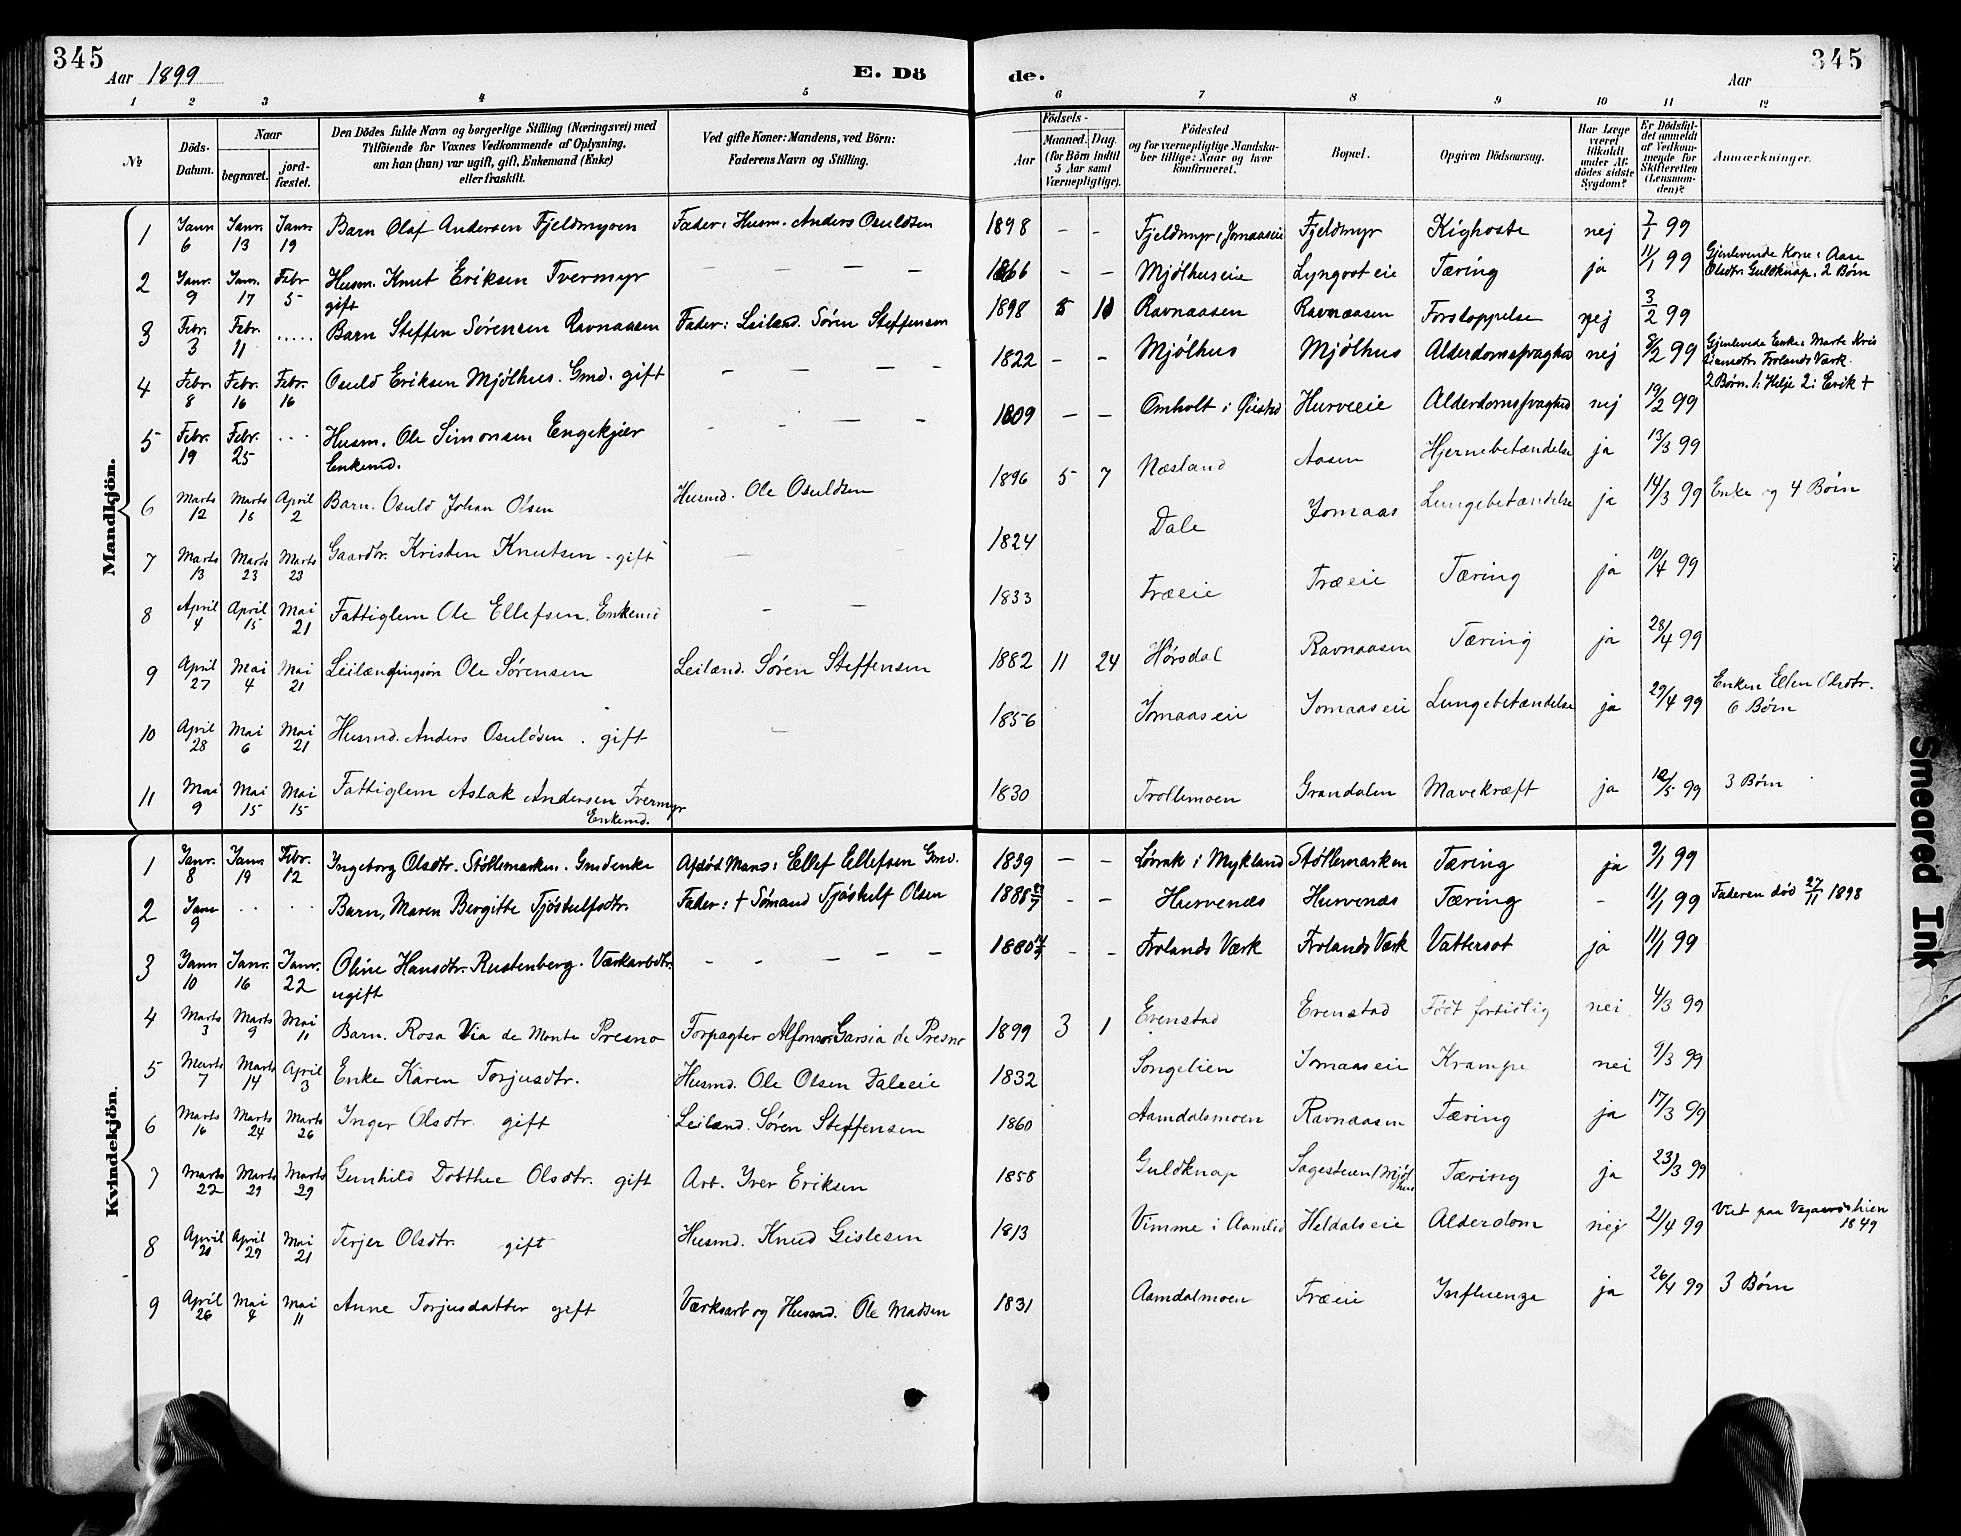 345
Aar 1899
E. Dö
de.
Aar
345
1 2 3 4 5 6 7 8 9 10 11 12
No
Döds-Datum.
Naar
begravet.
jord-fæstet.
Den Dödes fulde Navn og borgerlige Stilling (Næringsvei) med
Tilföiende for Voxnes Vedkommende af Oplysning,
om han (hun) var ugift, gift, Enkemand (Enke)
eller fraskilt.
Ved gifte Koner: Mandens, ved Börn:
Faderens Navn og Stilling.
Födsels-
Aar
Maaned. Dag.
(for Börn indtil
5 Aar samt
Værnepligtige).
Födested
og for værnepligtige Mandska-
ber tillige: Naar og hvor
konfirmeret.
Bopæl.
Opgiven Dödsaarsag.
Har Læge
været
tilkaldt
under Af-
dödes sidste
Sygdom?
Er Dödsfal-
det anmeldt
af Vedkom-
mende for
Skifteretten
(Lensman-
den)?
Anmærkninger.
Mandkjön.
1 Janr 6 Janr. 13 Janr. 19 Barn Olaf Andersen Fjeldmyren Fader: Husm. Anders Osuldsen 1898 - - Fjeldmyr, Jomaaseie Fjeldmyr Kighoste nej 7/1 99
2 Janr. 9 Janr. 17 Febr 5 Husm. Knut Eriksen Tvermyr gift - - - - 1866 - - Mjølhuseie Lyngrot eie Tæring ja 11/1 99 Gjenlevende Kone: Aase Olsdtr. Guldknap. 2 Børn
3 Febr. 3 Febr. 11 ..... Barn Steffen Sørensen Ravnaasen Fader: Leiland. Søren Steffensen 1898 5 10 Ravnaasen Ravnaasen Forstoppelse nej 3/2 99
4 Febr. 8 Febr. 16 Febr. 16 Osuld Eriksen Mjølhus. Gmd. gift - - - - 1822 - - Mjølhus Mjølhus Alderdomssvaghed nej 8/2 99 Gjenlevede Enke: Marte Kristiansdtr. Frolands Værk. 2 Børn. 1: Helje 2: Erik +
5 Febr. 19 Febr. 25 ... Husm. Ole Simonsen Engekjær Enkemd. - - - - 1809 - - Omholt i Øiestad Hurveeie Alderdomssvaghed nej 19/2 99
6 Marts 12 Marts 16 April 2 Barn. Osuld Johan Olsen Husmd. Ole Osuldsen 1896 5 7 Næsland Aasen Hjernebetændelse ja 13/3 99
7 Marts 13 Marts 23 Marts 23 Gaardbr. Kristen Knutsen - gift - - 1824 Dale Jomaas Lungebetændelse ja 14/3 99 Enke og 4 Børn
8 April 4 April 15 Mai 21 Fattiglem Ole Ellefsen. Enkemd - - 1833 Træeie Træeie Tæring ja 10/4 99
9 April 27 Mai 4 Mai 21 Leilændingsøn Ole Sørensen Leilænd. Søren Steffensen 1882 11 24 Hørsdal Ravnaasen Tæring ja 28/4 99
10 April 28 Mai 6 Mai 21 Husmd. Anders Osuldsen. gift - 1856 Jomaaseie Jomaaseie Lungebetændelse ja 29/4 99 Enken Ellen Olsdtr. 6 Børn
11 Mai 9 Mai 15 Mai 15 Fattiglem Aslak Andersen Tvermyr Enkemd. 1830 Trollemoen Grandalen Mavekræft ja 10/5 99 3 Børn
Kvindekjön.
1 Janr. 8 Janr. 19 Febr. 12 Ingeborg Olsdtr. Støllemarken. Gmdenke Afdød Mand: Ellef Ellefsen Gmd. 1839 - - Løvrak i Mykland Støllemarken Tæring ja 9/1 99
2 Janr 9 . .. Barn, Maren Bergitte Tjøstulfsdtr. Fader: + Sømand Tjøstulf Olsen 1888 - - Hurvenæs Hurvenæs Tæring - 11/1 99 Faderen død 27/11 1898
3 Janr 10 Janr. 16 Janr. 22 Oline Hansdtr. Rustenberg. Værkarbdtr. ugift - - - - - 1880 - - Frolands Værk Frolands Værk Vattersot ja 11/1 99
4 Marts 3 Marts 9 Mai 11 Barn. Rosa Via de Monte Presno Forpagter Alfonso Garsia de Presno 1899 3 1 Evenstad Evenstad Født fortidlig nei 4/3 99
5 Marts 7 Marts 14 April 3 Enke Karen Torjusdtr. Husmd. Ole Olsen Daleeie 1832 Songelien Jomaaseie Krampe nei 9/3 99
6 Marts 16 Marts 24 Marts 26 Inger Olsdtr. gift Leilænd. Søren Steffensen 1860 Aamdalsmoen Ravnaasen Tæring ja 17/3 99
7 Marts 22 Marts 29 Marts 29 Gunhild Dotthee Olsdtr. gift Arb. Iver Eriksen 1858 Guldknap Sagesteen/Mjølhus Tæring ja 23/3 99
8 April 20 April 29 Mai 21 Terjer Olsdtr. gift Husmd. Knud Gislesen 1813 Vimme i Aamlid Heldalseie Alderdom nej 21/4 99 Viet paa 1849
9 April 26 Mai 4 Mai 11 Anne Torjusdatter gift Værksarb og Husmd. Ole Madsen 1831 Aamdalmoen Træeie Influenza ja 26/4 99 3 Børn
Smeared Ink